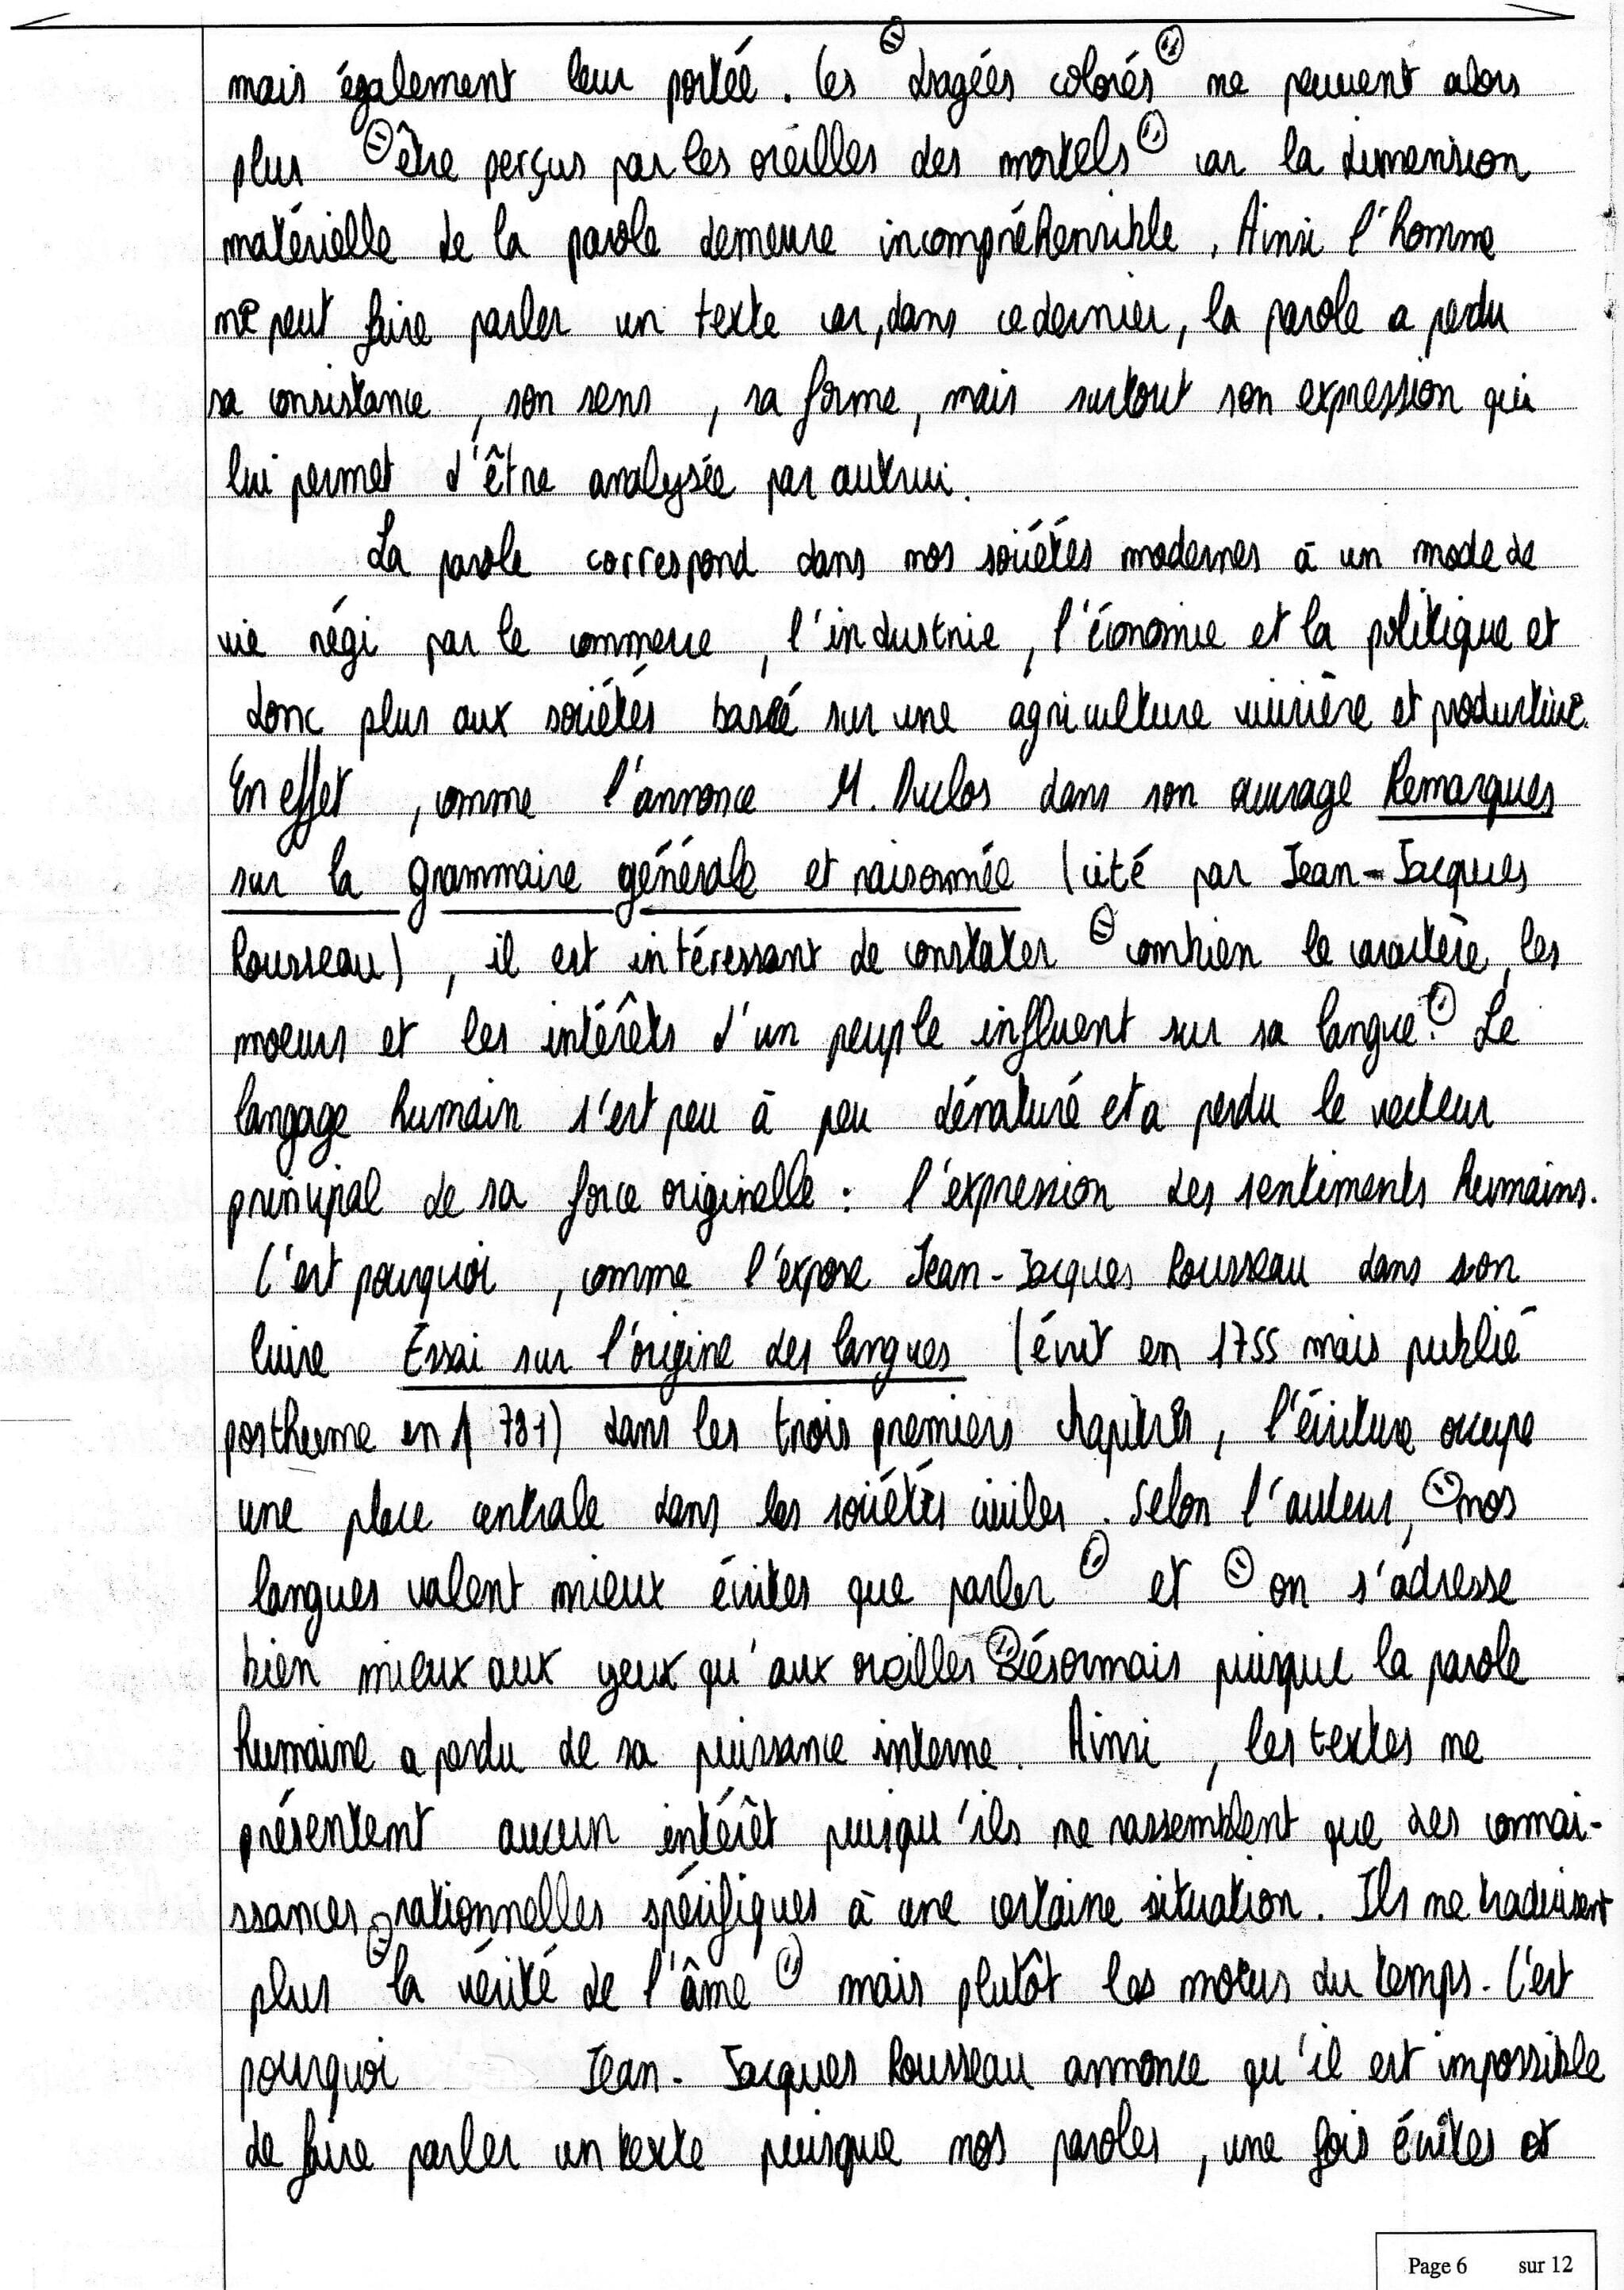 mais également leur portée. Ces "dragées colorés" ne peuvent alors
plus "être perçus par les oreilles des mortels" car la dimension
matérielle de la parole demeure incompréhensible. Ainsi l'homme
ne peut faire parler un texte car, dans ce dernier, la parole a perdu
sa consistance, son sens, sa forme, mais surtout son expression qui
lui permet d'être analysée par autrui.
La parole correspond dans nos sociétés modernes à un mode de
vie régi par le commerce, l'industrie, l'économie et la politique et
donc plus aux sociétés basée sur une agriculture vivrière et productive.
En effet, comme l'annonce M. Duclos dans son ouvrage Remarques
sur la grammaire générale et raisonnée (cité par Jean-Jacques
Rousseau), il est intéressant de constater "combien le caractère, les
moeurs et les intérêts d'un peuple influent sur sa langue". Le
langage humain s'est peu à peu dénaturé et a perdu le vecteur
principal de sa force originelle : l'expression des sentiments humains.
C'est pourquoi, comme l'expose Jean-Jacques Rousseau dans son
livre Essai sur l'origine des langues (écrit en 1755 mais publié
posthume en 1781) dans les trois premiers chapitres, l'écriture occupe
une place centrale dans les sociétés civiles. Selon l'auteur, "nos
langues valent mieux écrites que parler" et "on s'adresse
bien mieux aux yeux qu'aux oreilles" désormais puisque la parole
humaine a perdu de sa puissance interne. Ainsi, les textes ne
présentent aucun intérêt puisqu'ils ne rassemblent que des connai-
ssances rationnelles spécifiques à une certaine situation. Ils ne traduisent
plus "la vérité de l'âme" mais plutôt les moeurs du temps. C'est
pourquoi Jean-Jacques Rousseau annonce qu'il est impossible
de faire parler un texte puisque nos paroles, une fois écrites et
Page 6 sur 12